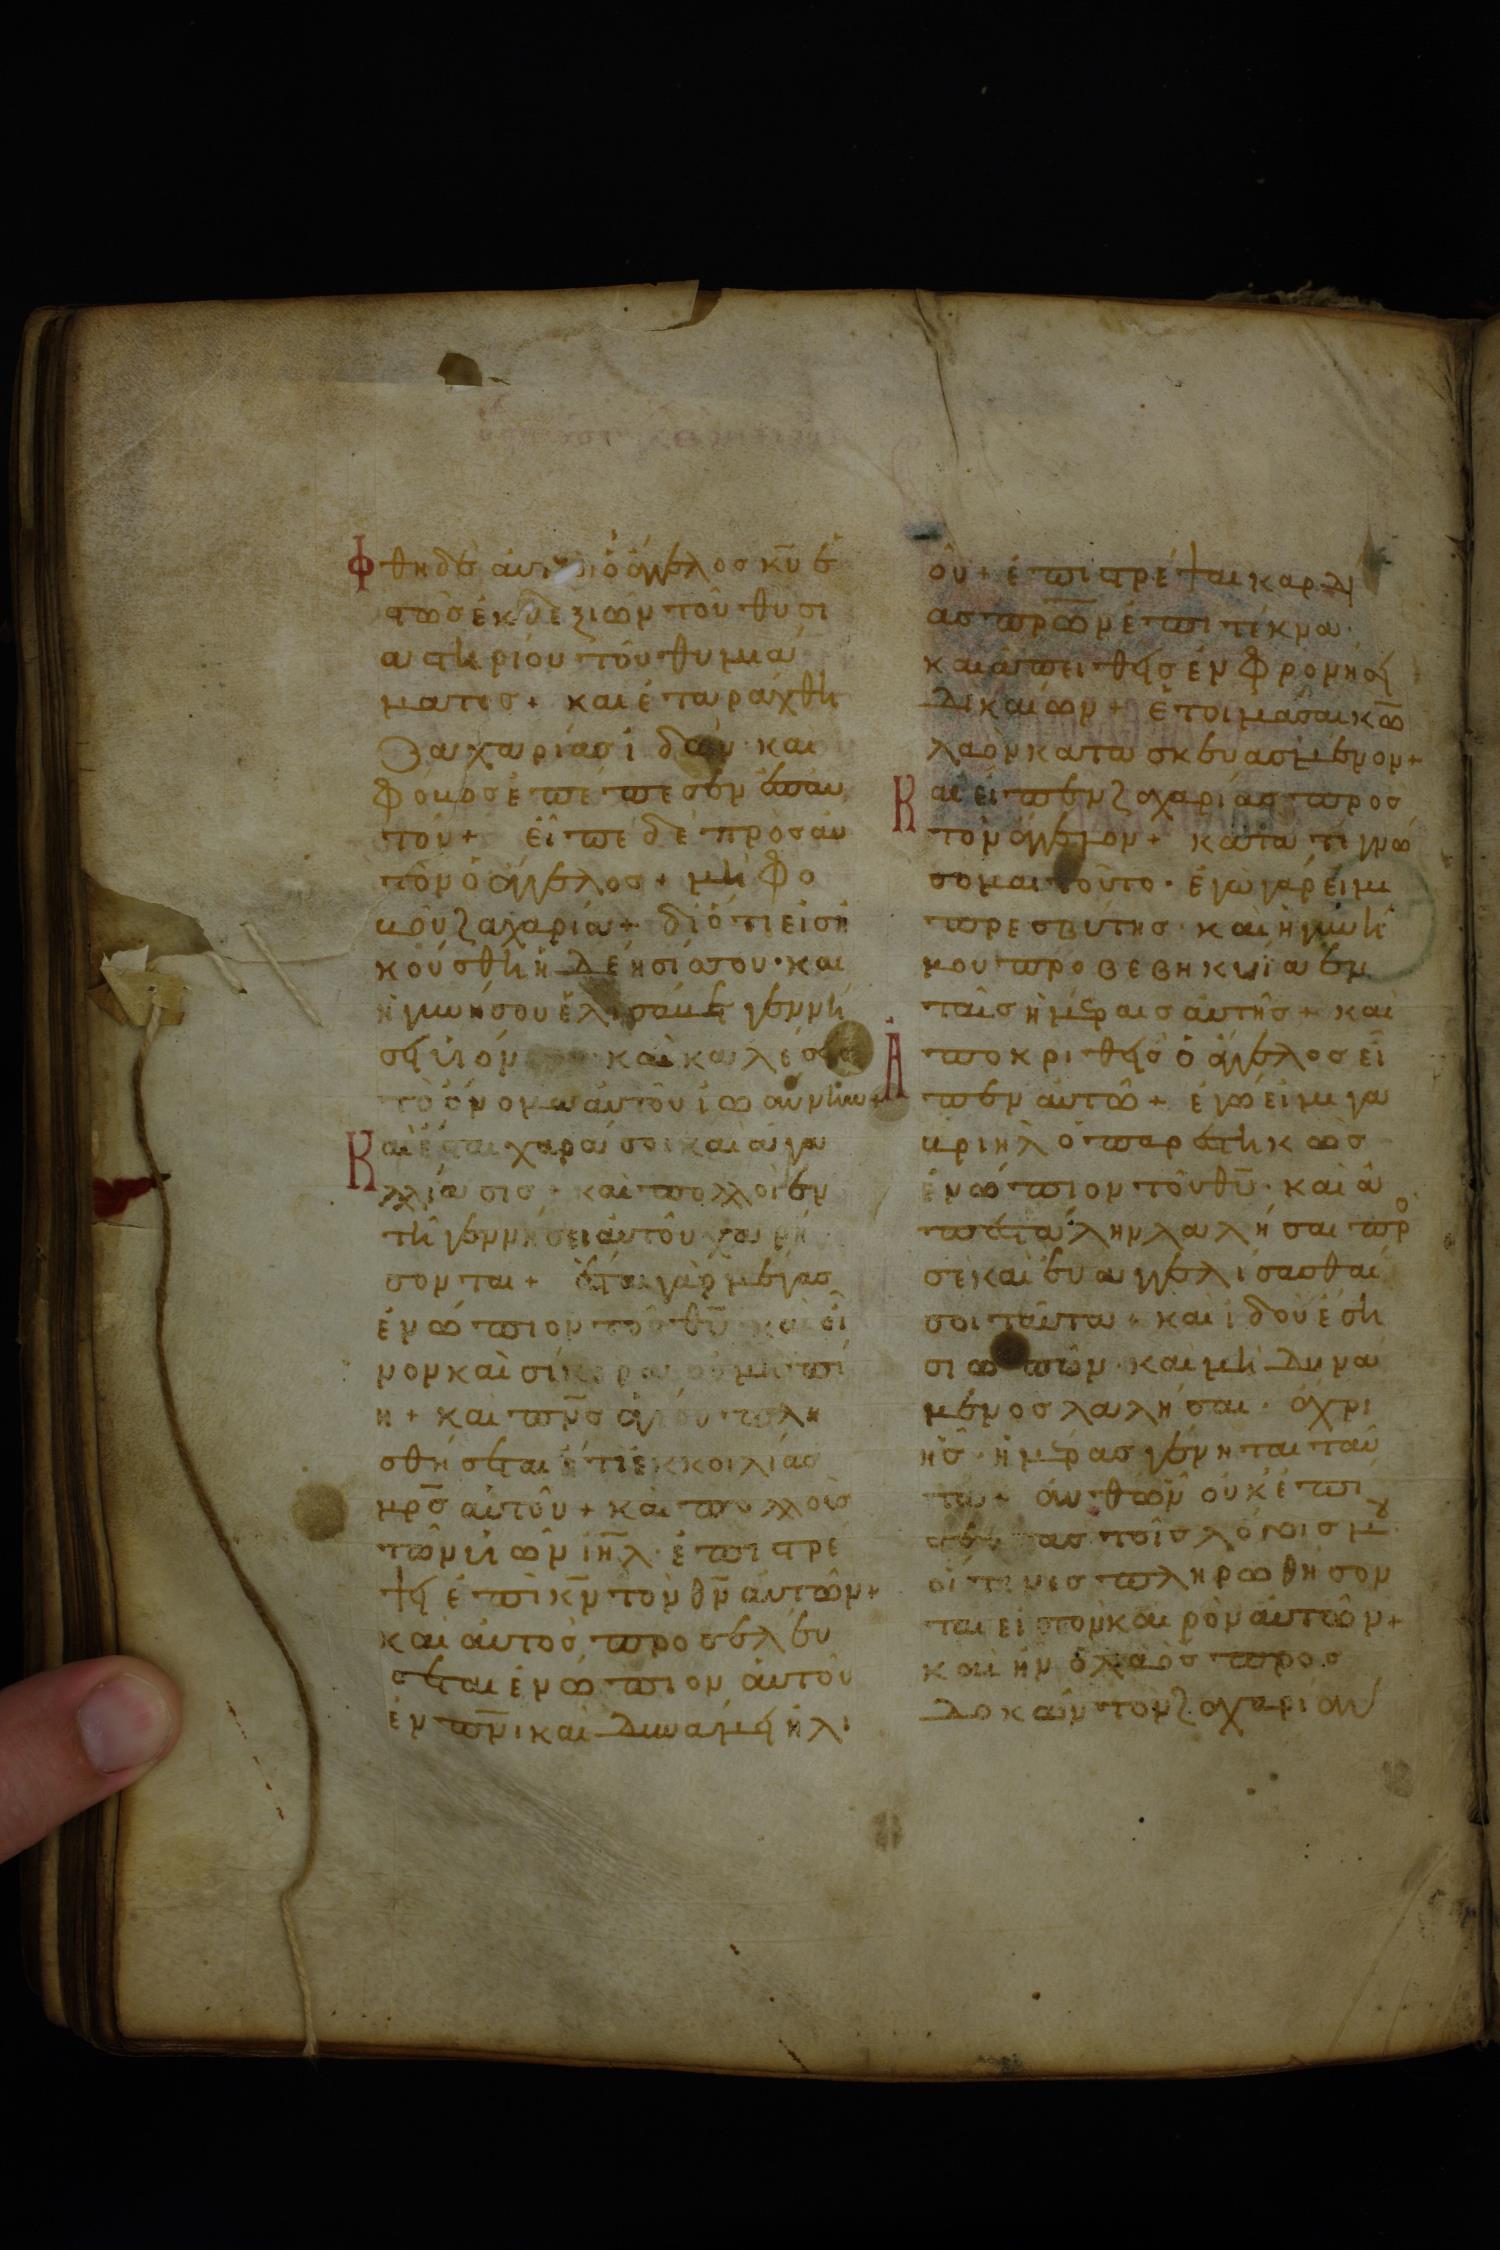 φθη δὲ αὐτῶ ὁ ἄγγελος κ̅υ̅ ἑ
στὼς ἐκ δεξιῶν τοῦ θυσι
αστηρίου τοῦ θυμιά
ματος + καὶ ἐταράχθη
Ζαχαρίας ἰδών · καὶ
φόβος ἐπέπεσεν ἐπ' αὐ
τόν + εἶπε δὲ πρὸς αὐ
τὸν ὁ ἄγγελος + μὴ φο
βοῦ ζαχαρία + διότι εἰση
κούσθη ἡ δέησίς σου · καὶ
ἡ γυνή σου ἐλισάβετ γεννή
σει υἱόν καὶ καλέσεις
τὸ ὄνομα αὐτοῦ ἰωάννην +
Καὶ ἔσται χαρά σοι καὶ ἀγα
λλίασις · καὶ πολλοὶ ἐν
τῆ γεννήσει αὐτοῦ χαρή
σονται + ἔσται γὰρ μέγας
ἐνώπιον τοῦ θ̅υ̅ καὶ οἶ
νον καὶ σίκερα οὐ μὴ πί
η + καὶ π̅ν̅ς ἁγίου πλη
σθήσεται ἔτι ἐκ κοιλίας
μ̅ρ̅ς αὐτοῦ + καὶ πολλοὺς
τῶν υἱῶν ι̅η̅λ · ἐπιστρέ
ψει ἐπὶ κ̅ν̅ τὸν θ̅ν̅ αὐτῶν +
καὶ αὐτὸς προσελεύ
σεται ἐνώπιον αὐτοῦ
ἐν π̅ν̅ι καὶ δυνάμει ἡλι
οῦ + ἐπιστρέψαι καρδί
ας π̅ρ̅ω̅ν ἐπὶ τέκνα ·
καὶ ἀπειθεῖς ἐν φρονήσει
δικαίων + ἑτοιμάσαι κ̅ω̅
λαὸν κατασκευασμένον +
Καὶ εἶπεν ζαχαρίας πρὸς
τὸν ἄγγελον + κατὰ τί γνώ
σομαι τοῦτο · ἐγὼ γάρ εἰμι
πρεσβύτης · καὶ ἡ γυνή
μου προβεβηκυῖα ἐν
ταῖς ἡμέραις αὐτῆς + καὶ
Ἀποκριθεὶς ὁ ἄγγελος εἶ
πεν αὐτῶ + ἐγώ εἰμι γα
βριὴλ ὁ παρεστηκὼς
ἐνώπιον τοῦ θ̅υ̅ · καὶ ἀ
πεστάλην λαλῆσαι πρό
σὲ καὶ εὐαγγελίσασθαί
σοι ταῦτα · καὶ ἰδοὺ ἔση
σιωπῶν · καὶ μὴ δυνά
μενος λαλῆσαι · ἄχρι
ἧς · ἡμέρας γένηται ταῦ
τα + ἀνθ' ὧν οὐκ ἐπί
στευσας τοῖς λόγοις μου
οἵτινες πληρωθήσον
ται εἰς τὸν καιρὸν αὐτῶν +
καὶ ἦν ὁ λαὸς προς
δοκῶν τὸν ζαχαρίαν